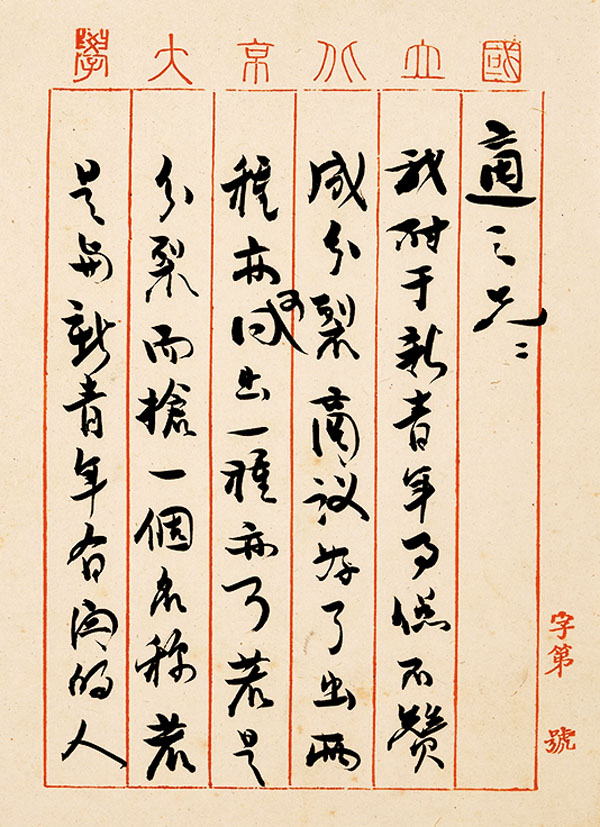 國立北京大學
適之兄：
我对于新青年事總不贊
成分裂商议好了出兩
種亦可同出一種亦可若是
分裂而搶一個名称若
是與新青年有関的人
字第　號